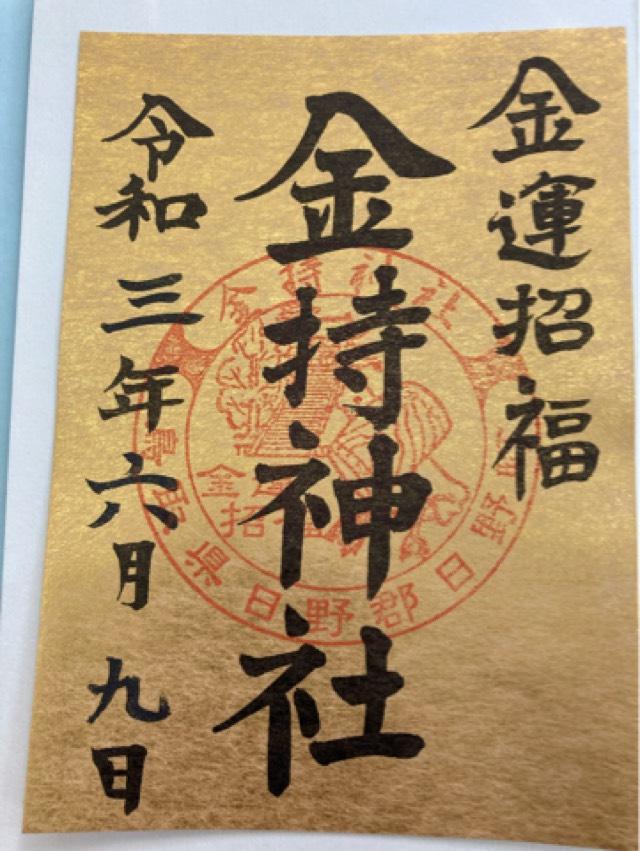 金運招福
金持神社
令和三年六月九日
金持神社
鳥取県日野郡日野町
金運
招福